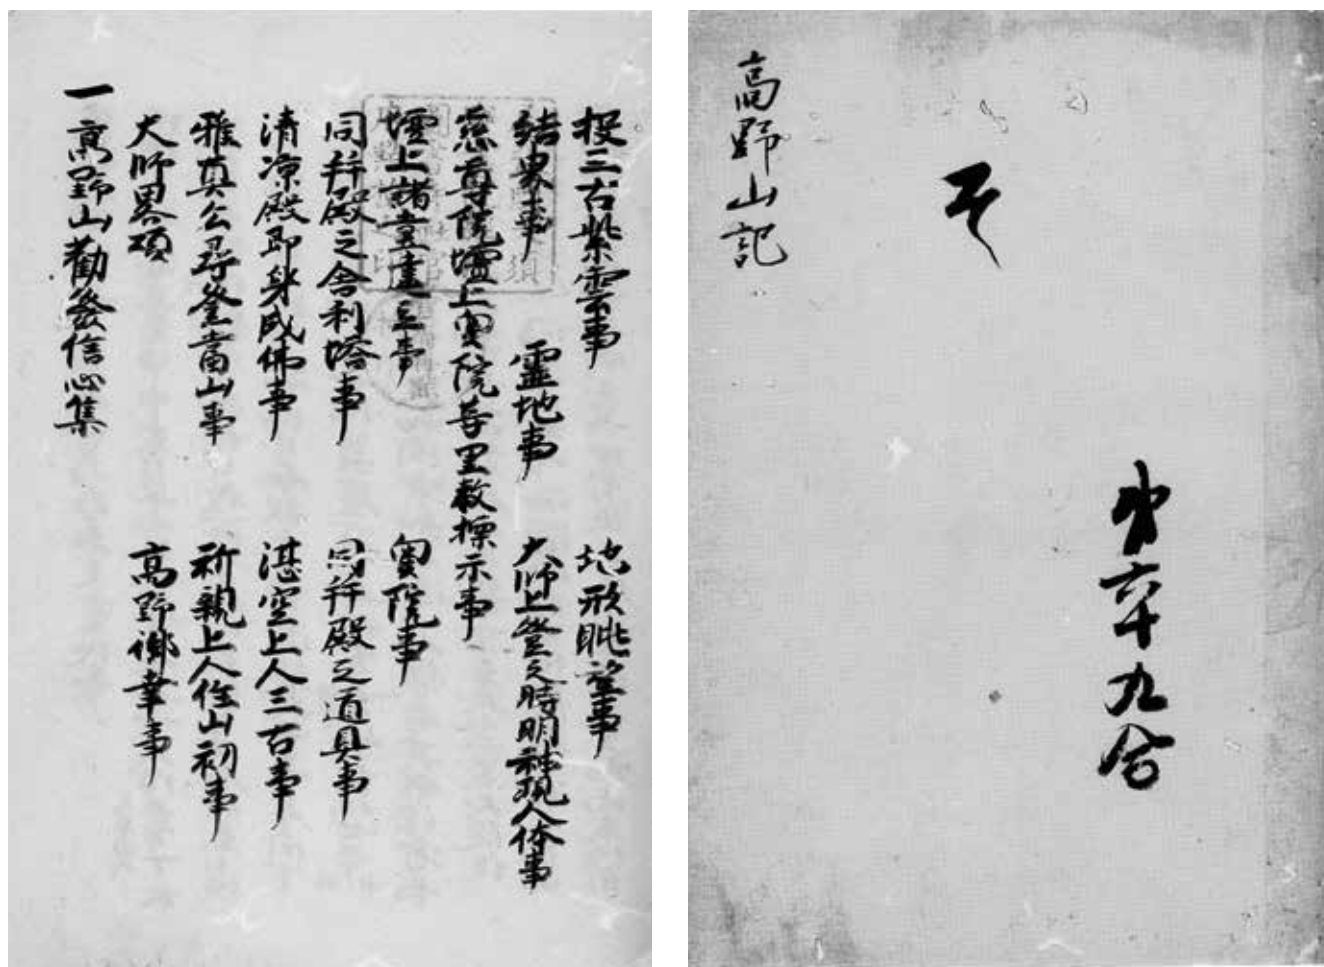 第六十九合
そ
高野山記
投三古紫雲事　地形眺望事
結界事　霊地事　大師上登之時明神現人体事
慈尊院壇上奥院等里数標示事
壇上諸堂建立事　奥院事
同拝殿之舎利塔事　同拝殿之道具事
清涼殿即身成佛事　湛空上人三古事
雅真公尋登當山事　祈親上人住山初事
大師畧頌　高野御幸事
一高野山勸發信心集